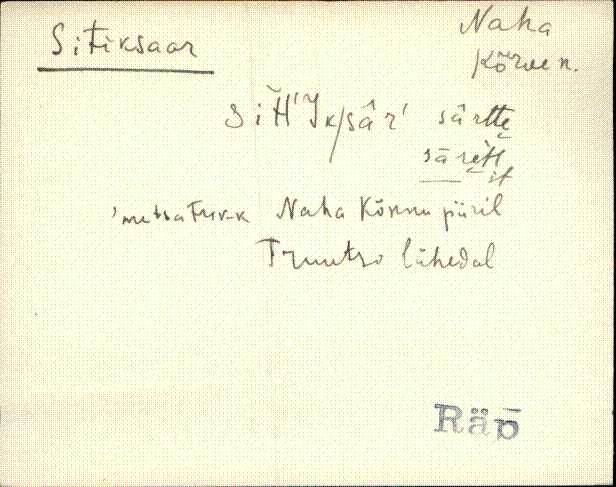 Sitiksaar
Naha
Kõrve n.
sit́t́ik/sâŕ sârtte
sārett
it
'metsatukk Naha Kõnnu piiril
Truutso lähedal
Räp̄